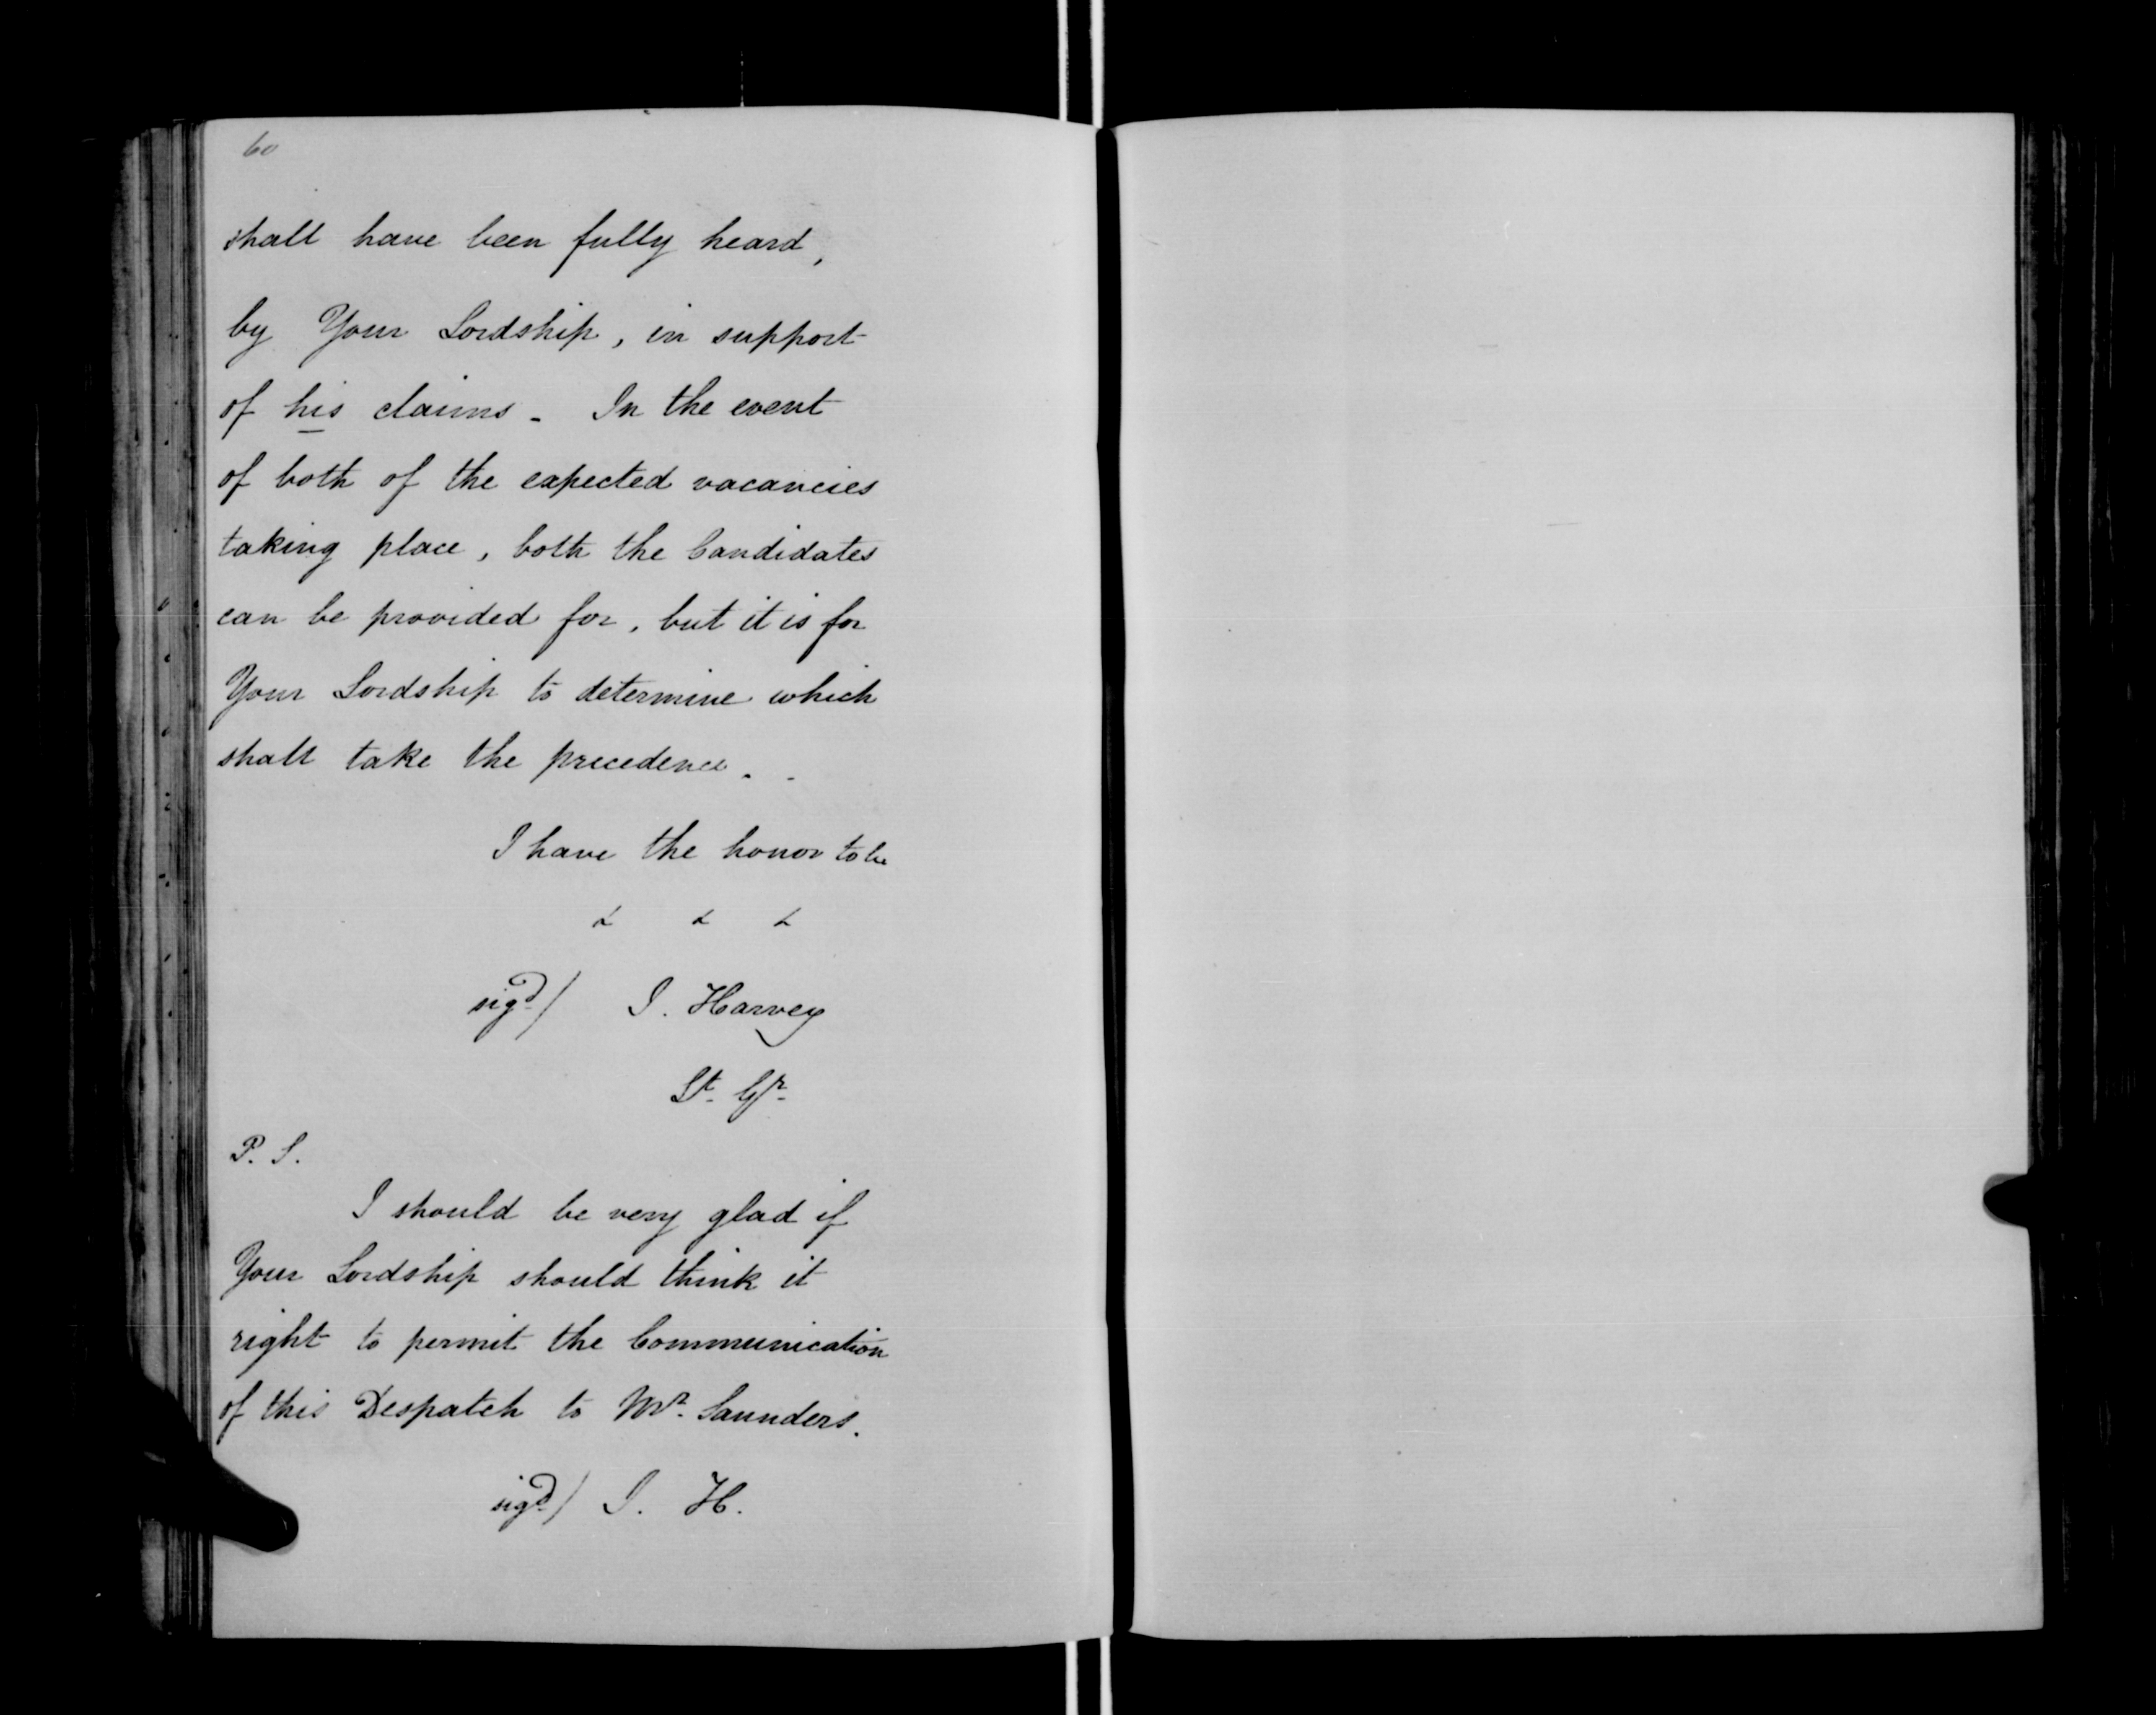 60
shall have been fully heard,
by Your Lordship, in support
of his claims - In the event
of both of the expected vacancies
taking place, both the Candidates
can be provided for, but it is for
Your Lordship to determine which
shall take the precedence. -
I have the honor to be
& & &
sigd/ J. Harvey
Lt. Gr.
P. S.
I should be very glad if
Your Lordship should think it
right to permit the Communication
of this Despatch to Mr. Saunders.
sigd/ J. H.